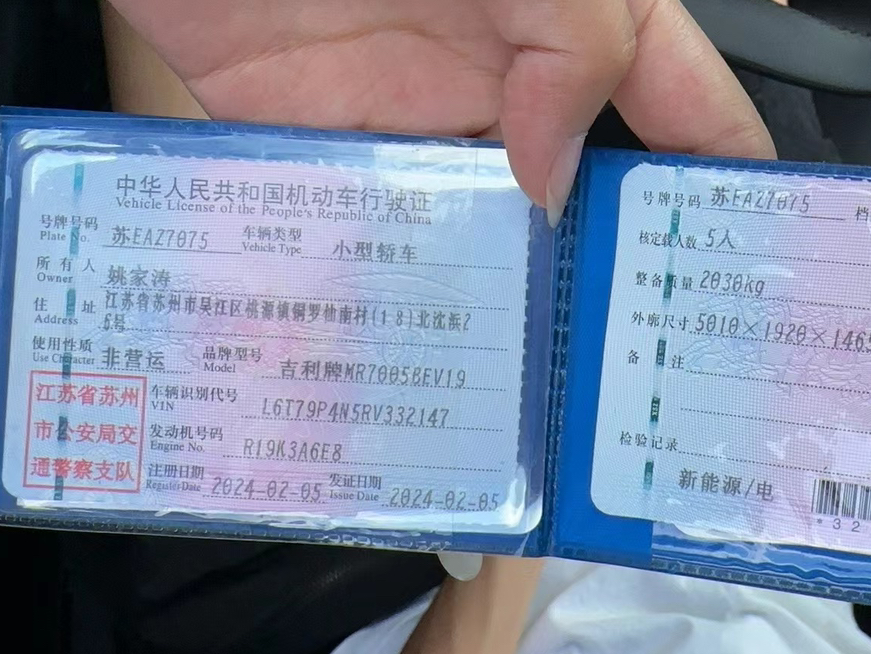 中华人民共和国机动车行驶证
Vehicle License of the People's Republic of China
号牌号码 Plate No. 苏EAZ7075 车辆类型 Vehicle Type 小型轿车
所有人 Owner 姚家涛
住址 Address 江苏省苏州市吴江区桃源镇铜罗仙南村(18)北沈浜2
6号
使用性质 Use Character 非营运 品牌型号 Model 吉利牌MR7005BEV19
江苏省苏州
市公安局交
通警察支队
车辆识别代号 VIN L6T79P4N5RV332147
发动机号码 Engine No. R19K3A6E8
注册日期 Register Date 2024-02-05 发证日期 Issue Date 2024-02-05
号牌号码 苏EAZ7075 档
核定载人数 5人
整备质量 2030kg
外廓尺寸 5010×1920×1465
备注
检验记录
新能源/电
*32